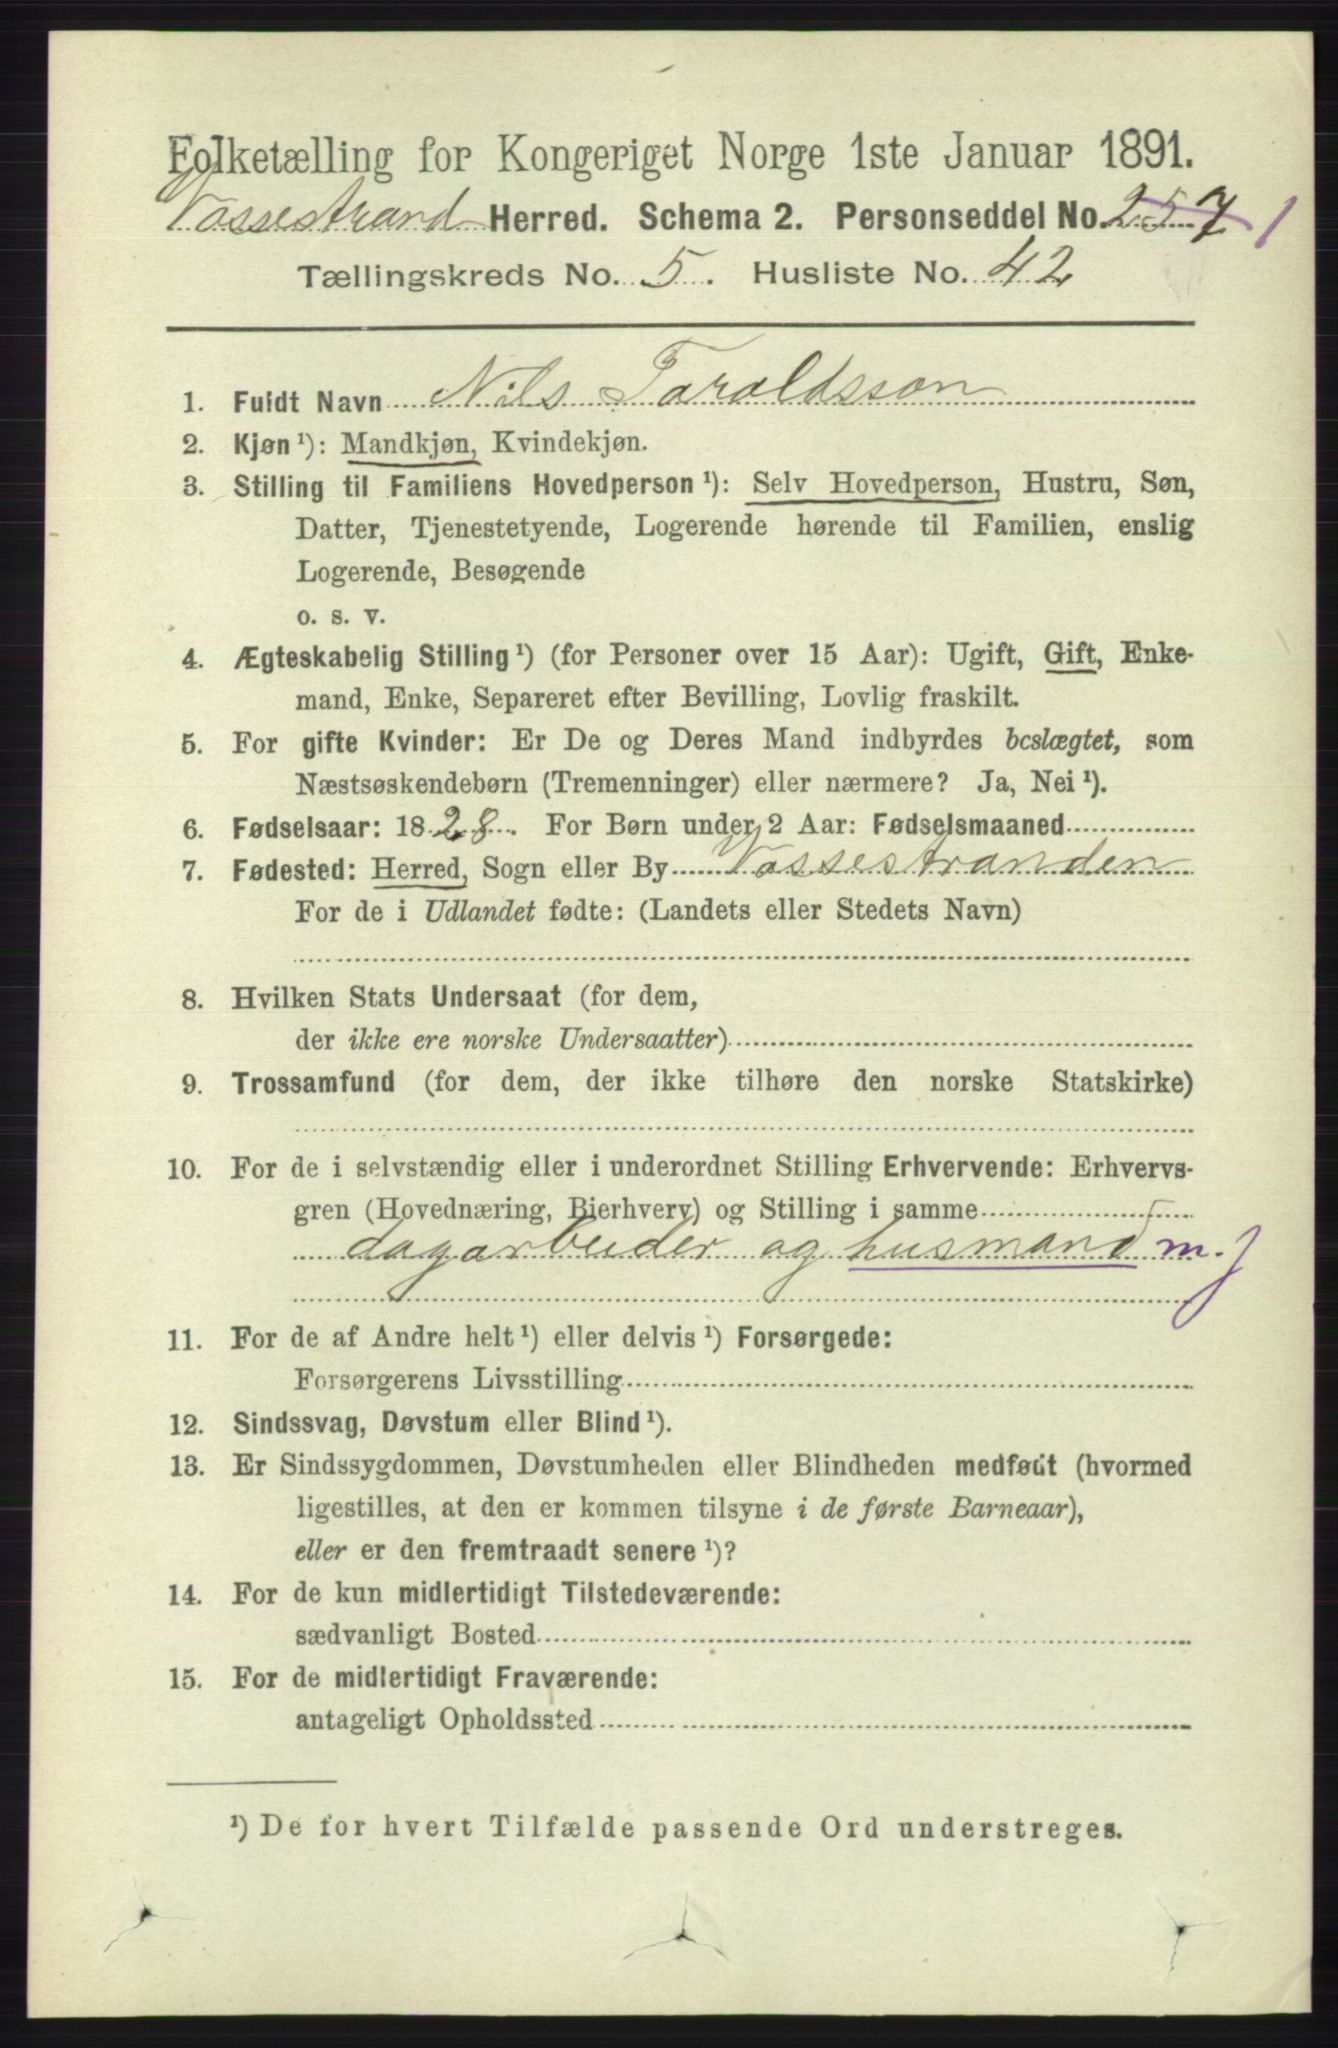 Folketælling for Kongeriget Norge 1ste Januar 1891.
Vossestrand Herred. Schema 2. Personseddel No. 257 1
Tællingskreds No. 5. Husliste No. 42
1. Fuldt Navn Nils Taraldsson
2. Kjøn ¹): Mandkjøn, Kvindekjøn.
3. Stilling til Familiens Hovedperson ¹): Selv Hovedperson, Hustru, Søn,
Datter, Tjenestetyende, Logerende hørende til Familien, enslig
Logerende, Besøgende
o. s. v.
4. Ægteskabelig Stilling ¹) (for Personer over 15 Aar): Ugift, Gift, Enke-
mand, Enke, Separeret efter Bevilling, Lovlig fraskilt.
5. For gifte Kvinder: Er De og Deres Mand indbyrdes beslægtet, som
Næstsøskendebørn (Tremenninger) eller nærmere? Ja, Nei ¹).
6. Fødselsaar: 1828. For Børn under 2 Aar: Fødselsmaaned
7. Fødested: Herred, Sogn eller By Vossestranden
For de i Udlandet fødte: (Landets eller Stedets Navn)
8. Hvilken Stats Undersaat (for dem,
der ikke ere norske Undersaatter)
9. Trossamfund (for dem, der ikke tilhøre den norske Statskirke)
10. For de i selvstændig eller i underordnet Stilling Erhvervende: Erhvervs-
gren (Hovednæring, Bierhverv) og Stilling i samme
dagarbeider og husmand m. j
11. For de af Andre helt ¹) eller delvis ¹) Forsørgede:
Forsørgerens Livsstilling
12. Sindssvag, Døvstum eller Blind ¹).
13. Er Sindssygdommen, Døvstumheden eller Blindheden medfødt (hvormed
ligestilles, at den er kommen tilsyne i de første Barneaar),
eller er den fremtraadt senere ¹)?
14. For de kun midlertidigt Tilstedeværende:
sædvanligt Bosted
15. For de midlertidigt Fraværende:
antageligt Opholdssted
¹) De for hvert Tilfælde passende Ord understreges.